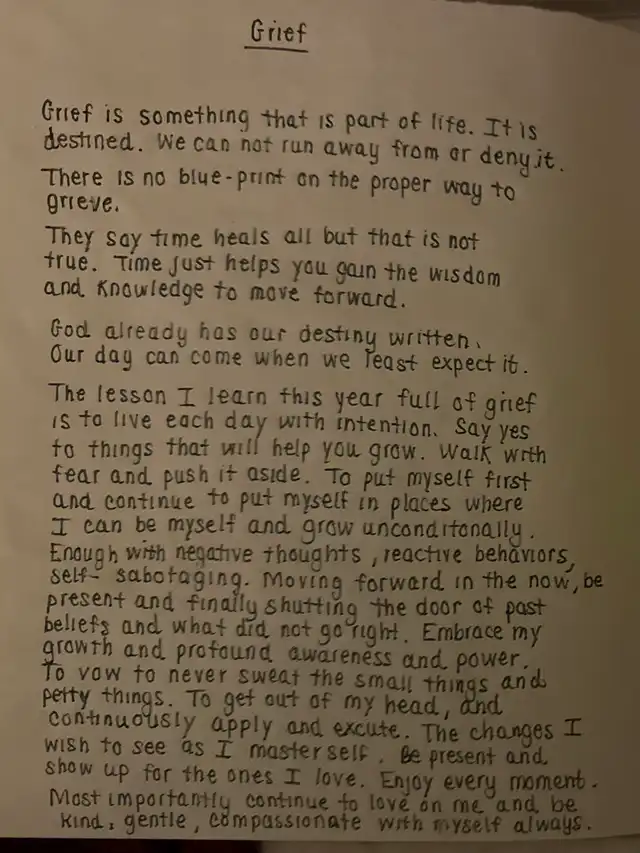 Grief
Grief is something that is part of life. It is
destined. We can not run away from or deny it.
There is no blue-print on the proper way to
grieve.
They say time heals all but that is not
true. Time just helps you gain the wisdom
and knowledge to move forward.
God already has our destiny written.
Our day can come when we least expect it.
The lesson I learn this year full of grief
is to live each day with intention. Say yes
to things that will help you grow. Walk with
fear and push it aside. To put myself first
and continue to put myself in places where
I can be myself and grow unconditonally.
Enough with negative thoughts, reactive behaviors,
self-sabotaging. Moving forward in the now, be
present and finally shutting the door of past
beliefs and what did not go right. Embrace my
growth and profound awareness and power.
To vow to never sweat the small things and
petty things. To get out of my head, and
continuously apply and excute. The changes I
wish to see as I master self. Be present and
show up for the ones I love. Enjoy every moment.
Most importantly continue to love on me and be
kind, gentle, compassionate with myself always.